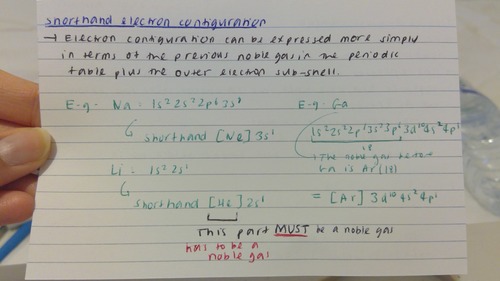 Shorthand electron configuration
→ Electron configuration can be expressed more simply
in terms of the previous noble gas in the periodic
table plus the outer electron sub-shell.
E-g- Na: 1s² 2s² 2p⁶ 3s¹
shorthand [Ne] 3s¹
Li: 1s² 2s¹
shorthand [He] 2s¹
E-g- Ga
1s² 2s² 2p⁶ 3s² 3p⁶ 3d¹⁰ 4s² 4p¹
18
The noble gas
Ga is Ar (18)
= [Ar] 3d¹⁰ 4s² 4p¹
This part MUST be a noble gas
has to be a
noble gas